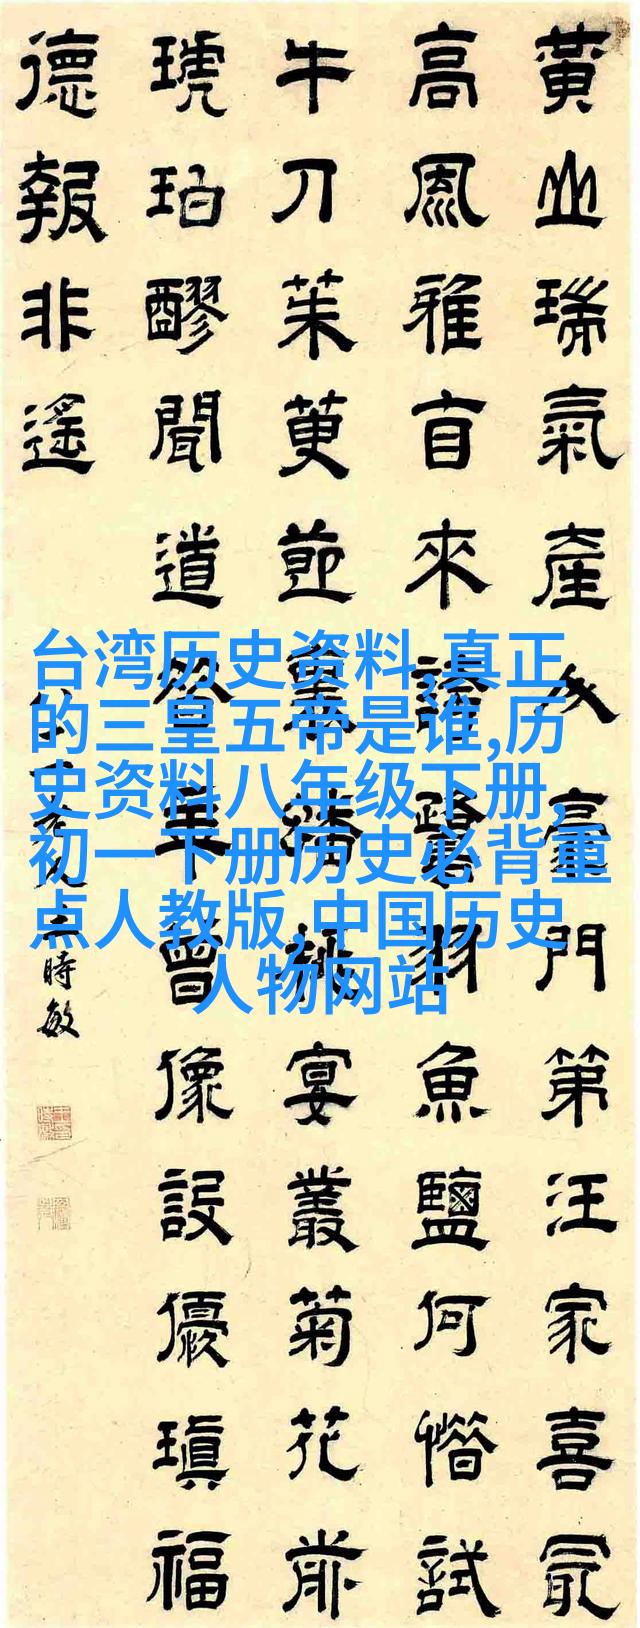 黃山瑞氣產人豪門第汪家喜最
高風雅盲來羽魚鹽何惜試
牛刀茱萸節重宴叢菊花前
琥珀醪聞道曾像設優瑱福
德報非遙
時敏
台湾历史资料,真正
的三皇五帝是谁,历
史资料八年级下册,
初一下册历史必背重
点人教版,中国历史
人物网站